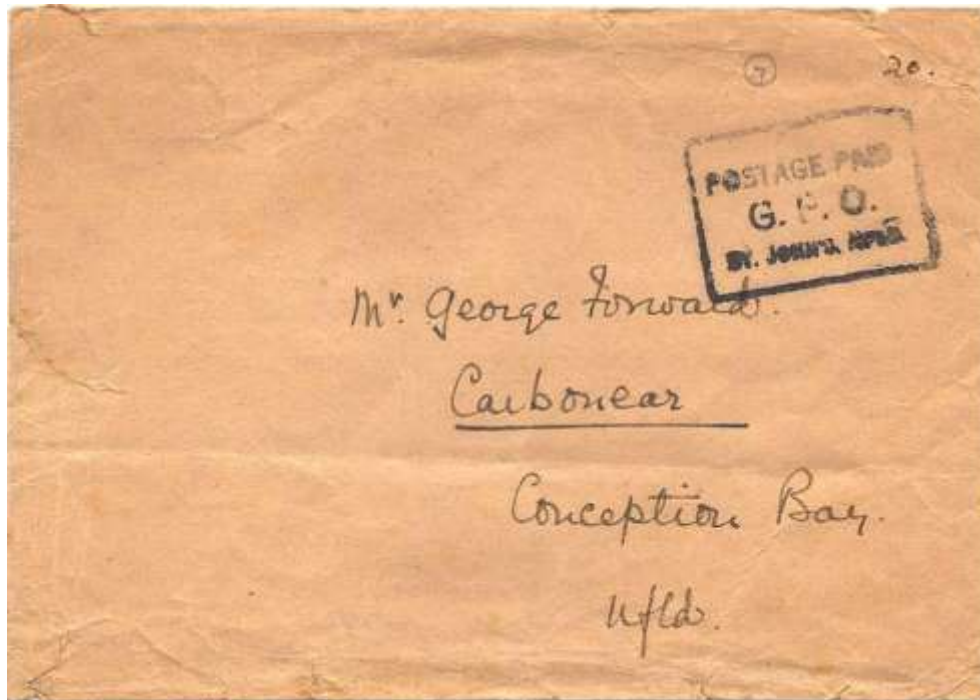 7 20.
POSTAGE PAID
G. P. O.
ST. JOHN'S, NFLD.
Mr. George Forward.
Carbonear
Conception Bay.
Nfld.